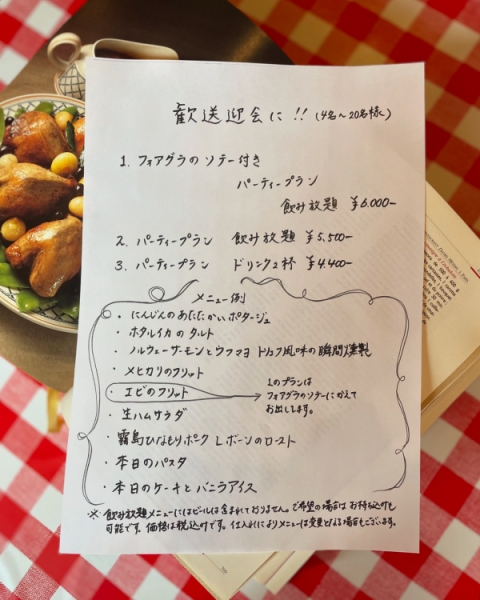 歓送迎会に!! (4名〜20名様)
1. フォアグラのソテー付き
パーティープラン
飲み放題 ¥6.000-
2. パーティープラン 飲み放題 ¥5,500-
3. パーティープラン ドリンク2杯 ¥4.400-
メニュー例
・にんじんのあたたかいポタージュ
・ホタルイカのタルト
・ノルウェーサーモンとウフマヨ トリュフ風味の瞬間燻製
・メヒカリのフリット
・エビのフリット
1のプランは
フォアグラのソテーにかえて
お出しします。
・生ハムサラダ
・霧島ひなもりポーク Lボーンのロースト
・本日のパスタ
・本日のケーキとバニラアイス
※飲み放題メニューにはビールは含まれておりません。ご希望の場合は お持ち込みも
可能です。価格は税込みです。仕入れによりメニューは変更となる場合もございます。